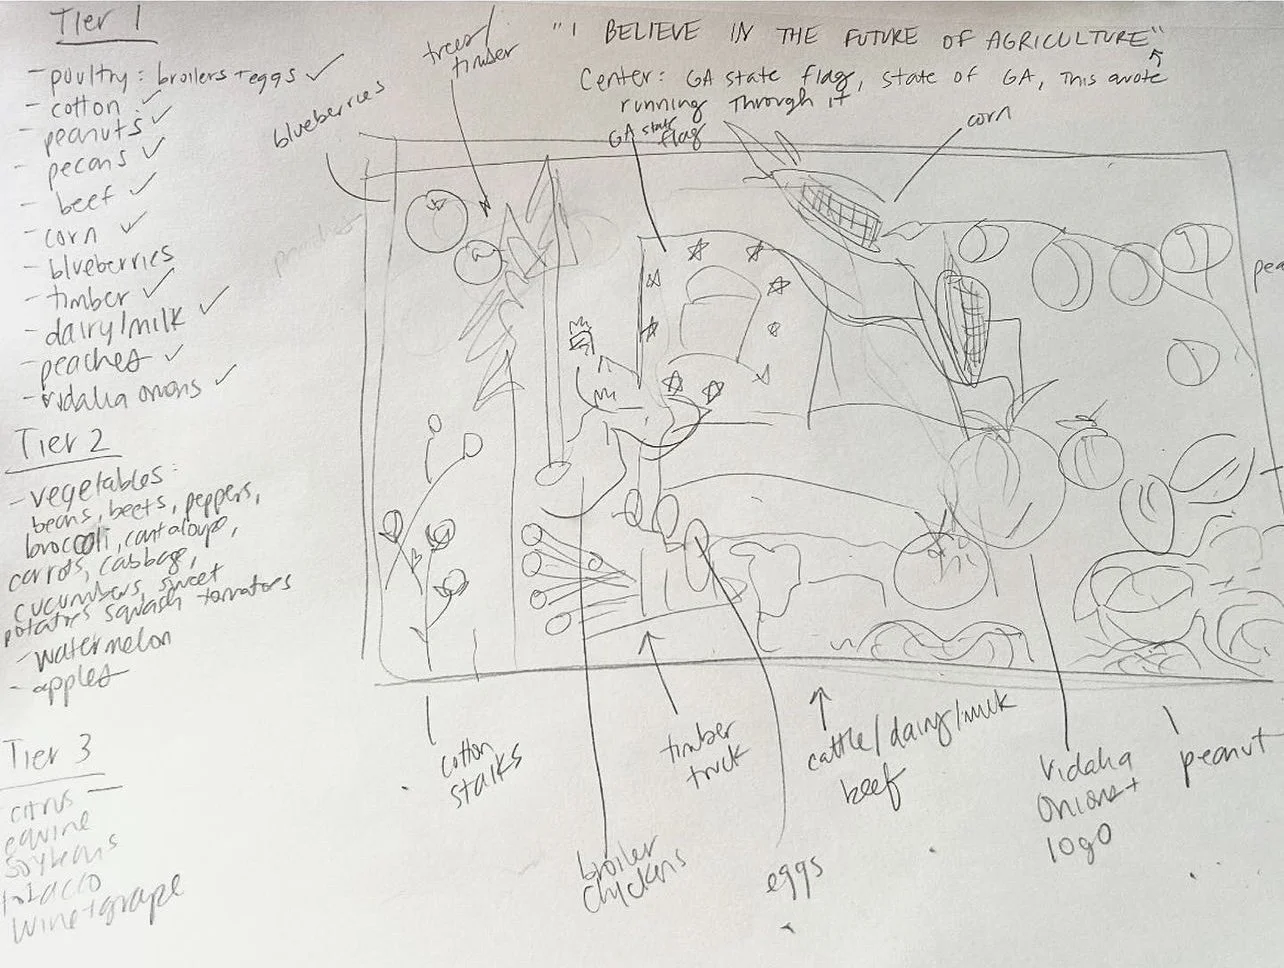 Tier 1
- poultry: broilers + eggs ✓
- cotton ✓
- peanuts ✓
- pecans ✓
- beef ✓
- corn ✓
- blueberries
- timber ✓
- dairy/milk ✓
- peaches ✓
- vidalia onions ✓
Tier 2
- vegetables:
beans, beets, peppers,
broccoli, cantaloupe,
carrots, cabbage,
cucumbers, sweet
potatoes squash tomatoes
- watermelon
- apples
Tier 3
citrus
equine
soybeans
tobacco
wine + grape
"I BELIEVE IN THE FUTURE OF AGRICULTURE"
Center: GA state flag, state of GA, this quote
running through it
trees/
timber
blueberries
GA state
flag
corn
peaches
pea
cotton
stalks
broiler
chickens
timber
truck
eggs
cattle/dairy/milk
beef
Vidalia
onions +
logo
peanut